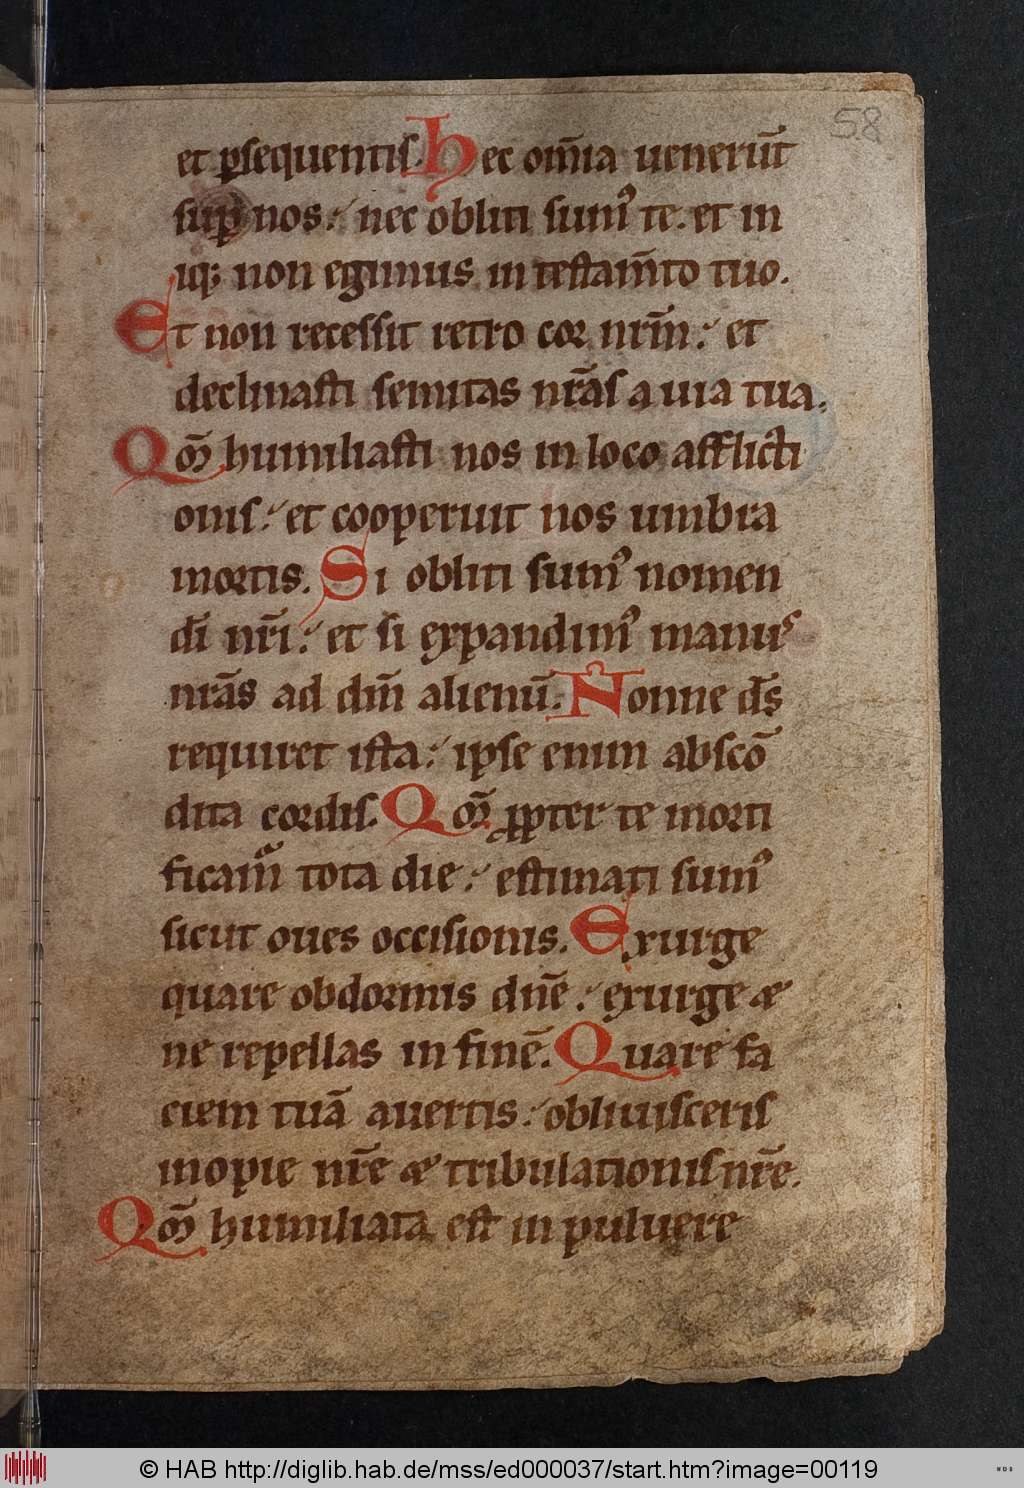 58
et ꝑsequentis. Hec om̄ia uenerūt
suꝑ nos: nec obliti sumꝰ te. et in
iqꝫ non egimus in testam̄to tuo.
Et non recessit retro cor nrm̄: et
declinasti semitas nrās a uia tua.
Qm̄ humiliasti nos in loco afflicti
onis: et cooperuit nos umbra
mortis. Si obliti sumꝰ nomen
dī nrī: et si expandimꝰ manus
nrās ad dm̄ alienū. Nonne ds̄
requiret ista: ipse enim abscō
dita cordis. Qm̄ ꝓpter te morti
ficam̄ tota die: estimati sumꝰ
sicut oues occisionis. Exurge
quare obdormis dn̄e: exurge æ
ne repellas in finē. Quare fa
ciem tuā auertis: obliuisceris
inopie nr̄e æ tribulationis nr̄e.
Qm̄ humiliata est in puluere
© HAB http://diglib.hab.de/mss/ed000037/start.htm?image=00119